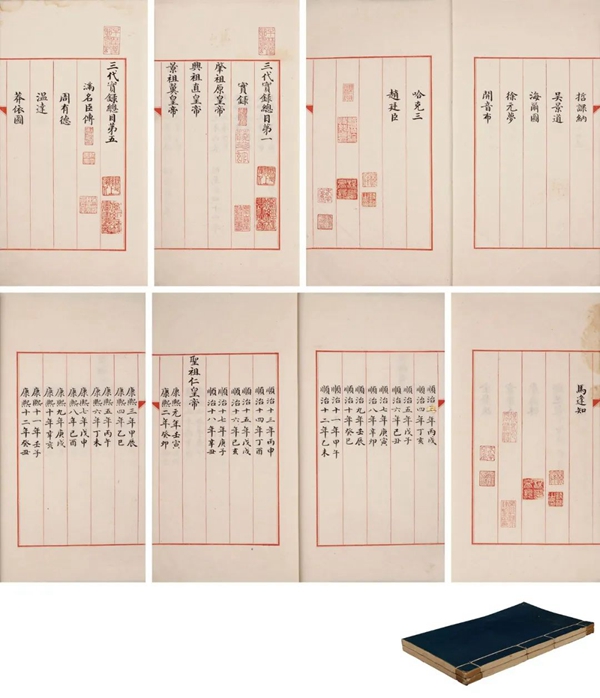 三代實錄總目第五
滿名臣傳
周有德
溫達
莽依圖
三代實錄總目第一
實錄
肇祖原皇帝
興祖直皇帝
景祖翼皇帝
課納
吳景道
海爾圖
徐元夢
開音布
哈克三
趙廷臣
康熙三年甲辰
康熙四年乙巳
康熙五年丙午
康熙六年丁未
康熙七年戊申
康熙八年己酉
康熙九年庚戌
康熙十年辛亥
康熙十一年壬子
康熙十二年癸丑
順治十三年丙申
順治十四年丁酉
順治十五年戊戌
順治十六年己亥
順治十七年庚子
順治十八年辛丑
聖祖仁皇帝
康熙元年壬寅
康熙二年癸卯
順治三年丙戌
順治四年丁亥
順治五年戊子
順治六年己丑
順治七年庚寅
順治八年辛卯
順治九年壬辰
順治十年癸巳
順治十一年甲午
順治十二年乙未
馬達知